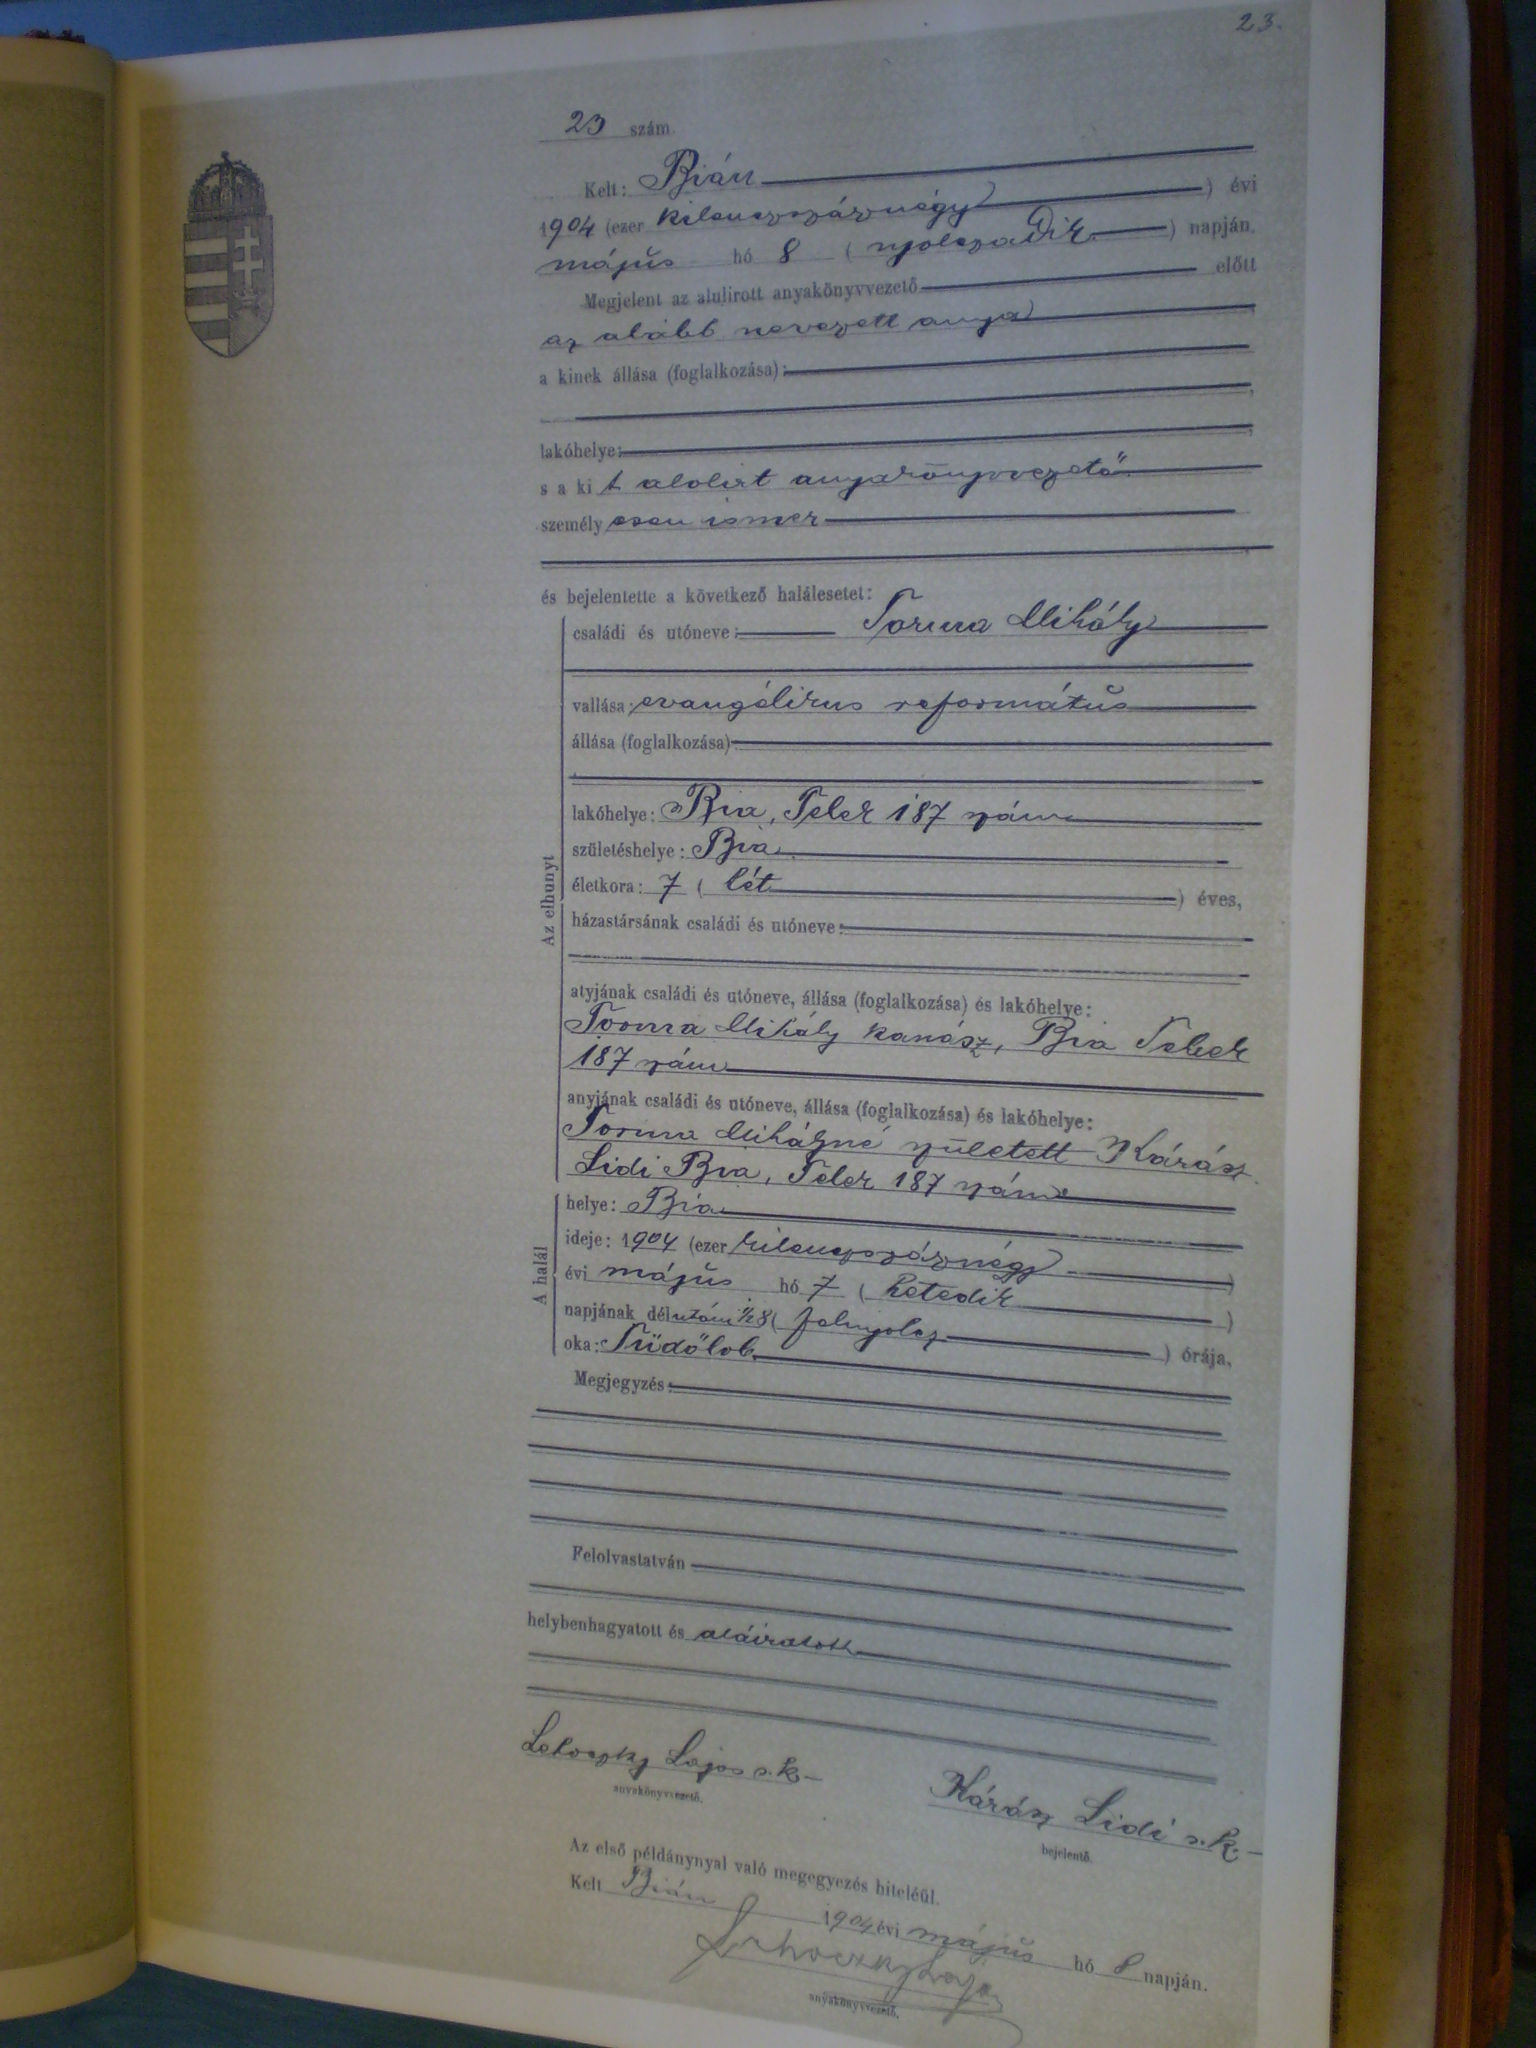 23.
23 szám
Kelt: Bián
1904 (ezer kilenczszáznégy) évi
május hó 8 (nyolczadik) napján.
Megjelent az alulirott anyakönyvvezető előtt
az alább nevezett anya
a kinek állása (foglalkozása):
lakóhelye:
s a kit alolirt anyakönyvvezető
személyesen ismer
és bejelentette a következő halálesetet:
Az elhunyt
családi és utóneve: Torma Mihály
vallása: evangélikus református
állása (foglalkozása)
lakóhelye: Bia, Telek 187 szám
születéshelye: Bia
életkora: 7 (hét) éves,
házastársának családi és utóneve:
atyjának családi és utóneve, állása (foglalkozása) és lakóhelye:
Torma Mihály kanász, Bia Telek
187 szám
anyjának családi és utóneve, állása (foglalkozása) és lakóhelye:
Torma Mihályné született Kárász
Lidi Bia, Telek 187 szám
A halál
helye: Bia
ideje: 1904 (ezer kilenczszáznégy)
évi május hó 7 (hetedik)
napjának délutáni ½8 (félnyolcz) órája,
oka: Tüdőlob
Megjegyzés:
Felolvastatván
helybenhagyatott és aláiratott
Lehoczky Lajos s.k.
anyakönyvvezető.
Kárász Lidi s.k.
bejelentő.
Az első példánynyal való megegyezés hiteléül.
Kelt Bián 1904 évi május hó 8 napján.
Lehoczky Lajos
anyakönyvvezető.